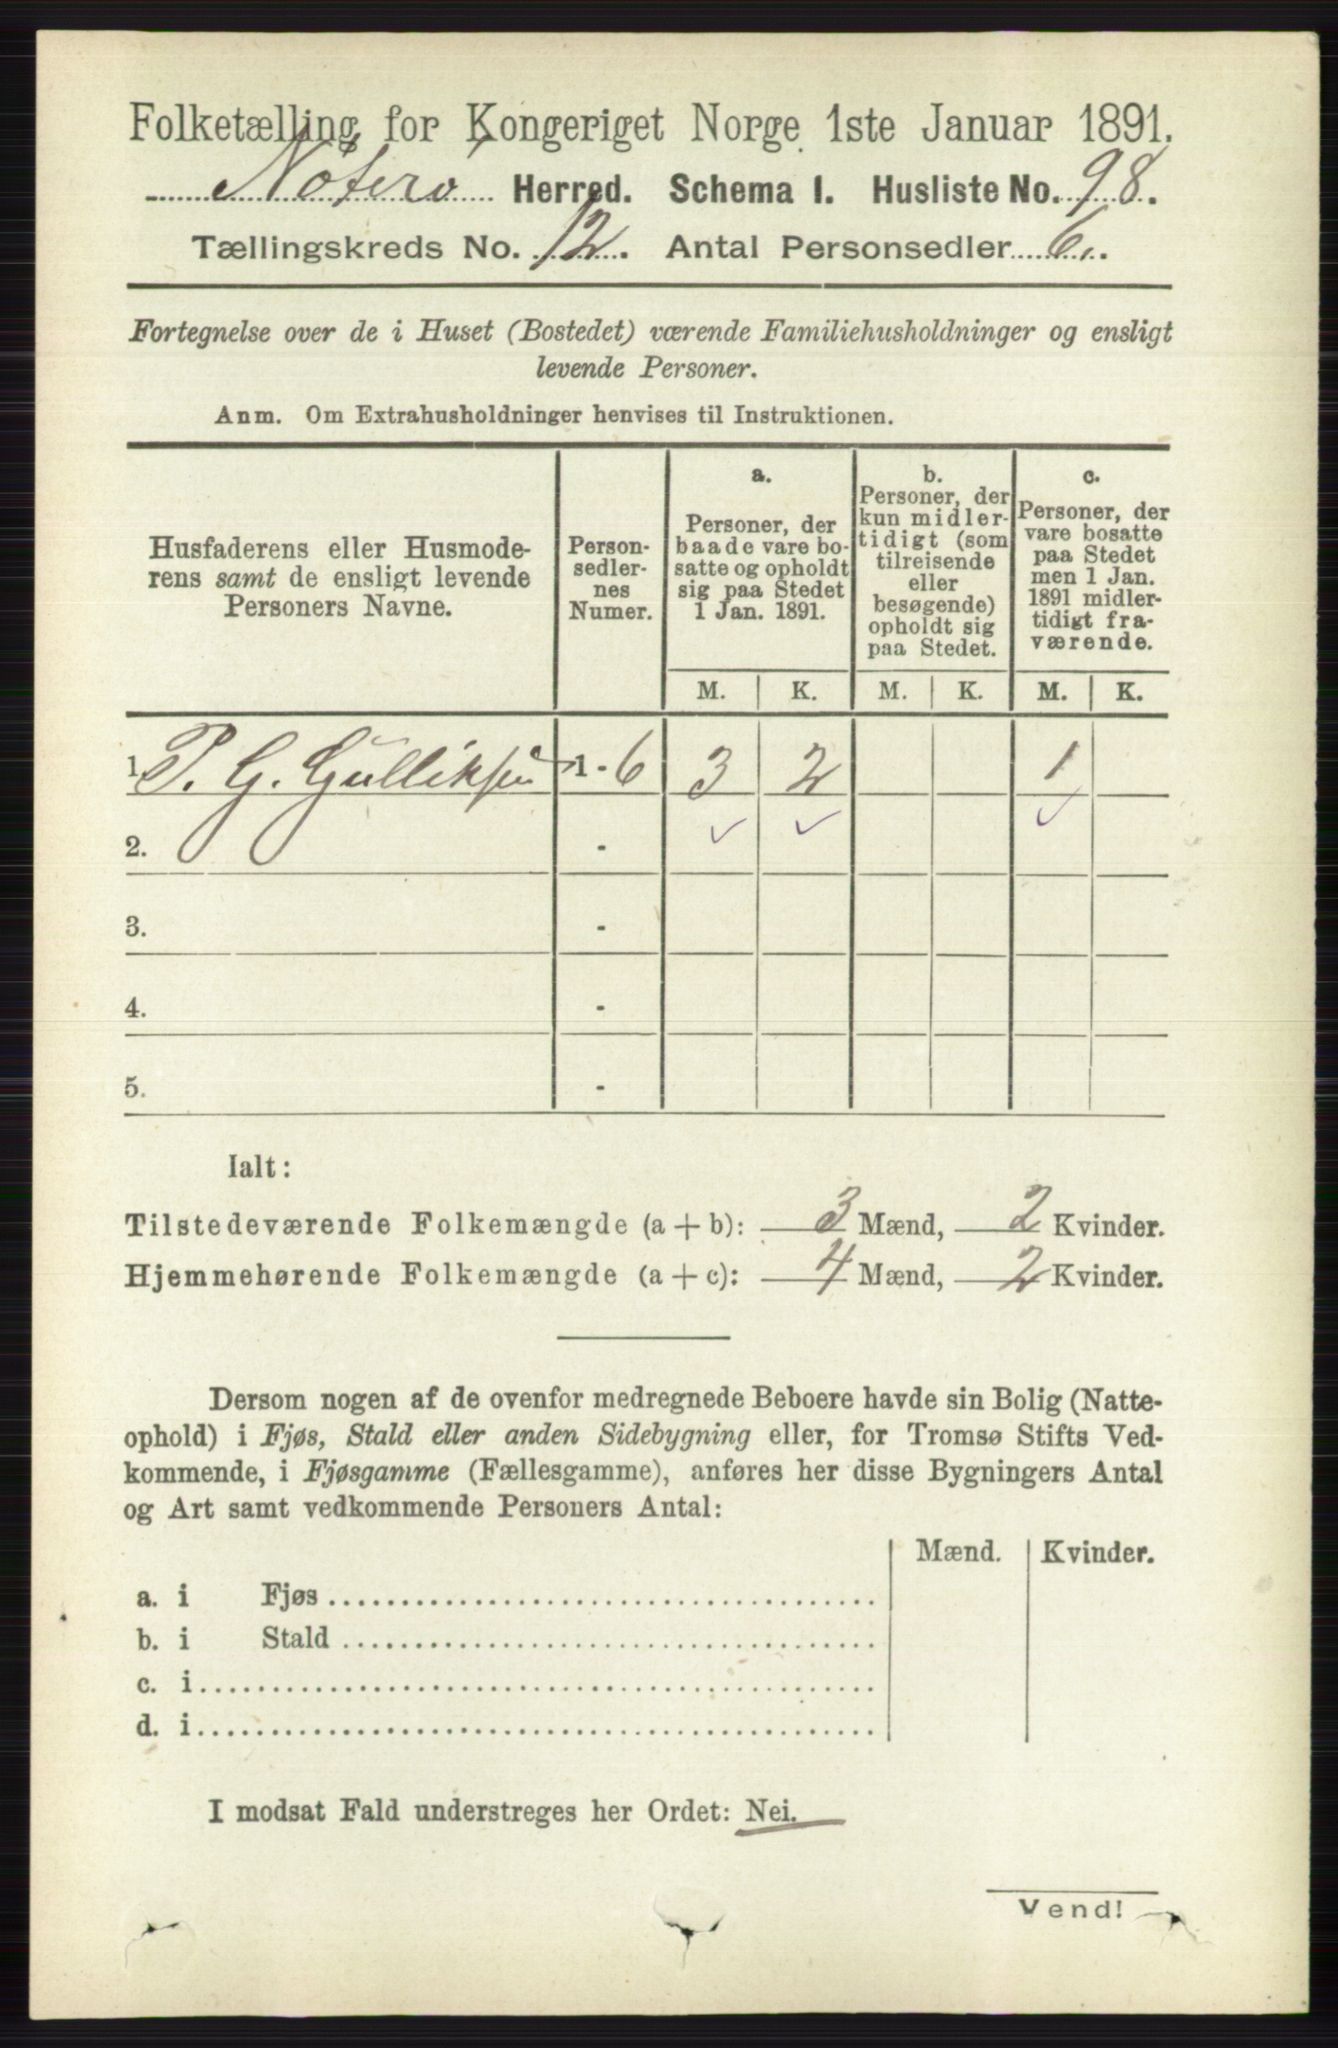 Folketælling for Kongeriget Norge 1ste Januar 1891.
Nøterø Herred. Schema I. Husliste No. 98.
Tællingskreds No. 12. Antal Personsedler 6.
Fortegnelse over de i Huset (Bostedet) værende Familiehusholdninger og ensligt
levende Personer.
Anm. Om Extrahusholdninger henvises til Instruktionen.
Husfaderens eller Husmode-
rens samt de ensligt levende
Personers Navne.
Person-
sedler-
nes
Numer.
a.
Personer, der
baade vare bo-
satte og opholdt
sig paa Stedet
1 Jan. 1891.
b.
Personer, der
kun midler-
tidigt (som
tilreisende
eller
besøgende)
opholdt sig
paa Stedet.
c.
Personer, der
vare bosatte
paa Stedet
men 1 Jan.
1891 midler-
tidigt fra-
værende.
M. K. M. K. M. K.
1. P. G. Gulliksen 1 - 6 3 2 1
2. - ✓ ✓ ✓
3. -
4. -
5. -
Ialt:
Tilstedeværende Folkemængde (a + b): 3 Mænd, 2 Kvinder.
Hjemmehørende Folkemængde (a + c): 4 Mænd, 2 Kvinder.
Dersom nogen af de ovenfor medregnede Beboere havde sin Bolig (Natte-
ophold) i Fjøs, Stald eller anden Sidebygning eller, for Tromsø Stifts Ved-
kommende, i Fjøsgamme (Fællesgamme), anføres her disse Bygningers Antal
og Art samt vedkommende Personers Antal:
Mænd. Kvinder.
a. i Fjøs
b. i Stald
c. i
d. i
I modsat Fald understreges her Ordet: Nei.
Vend!